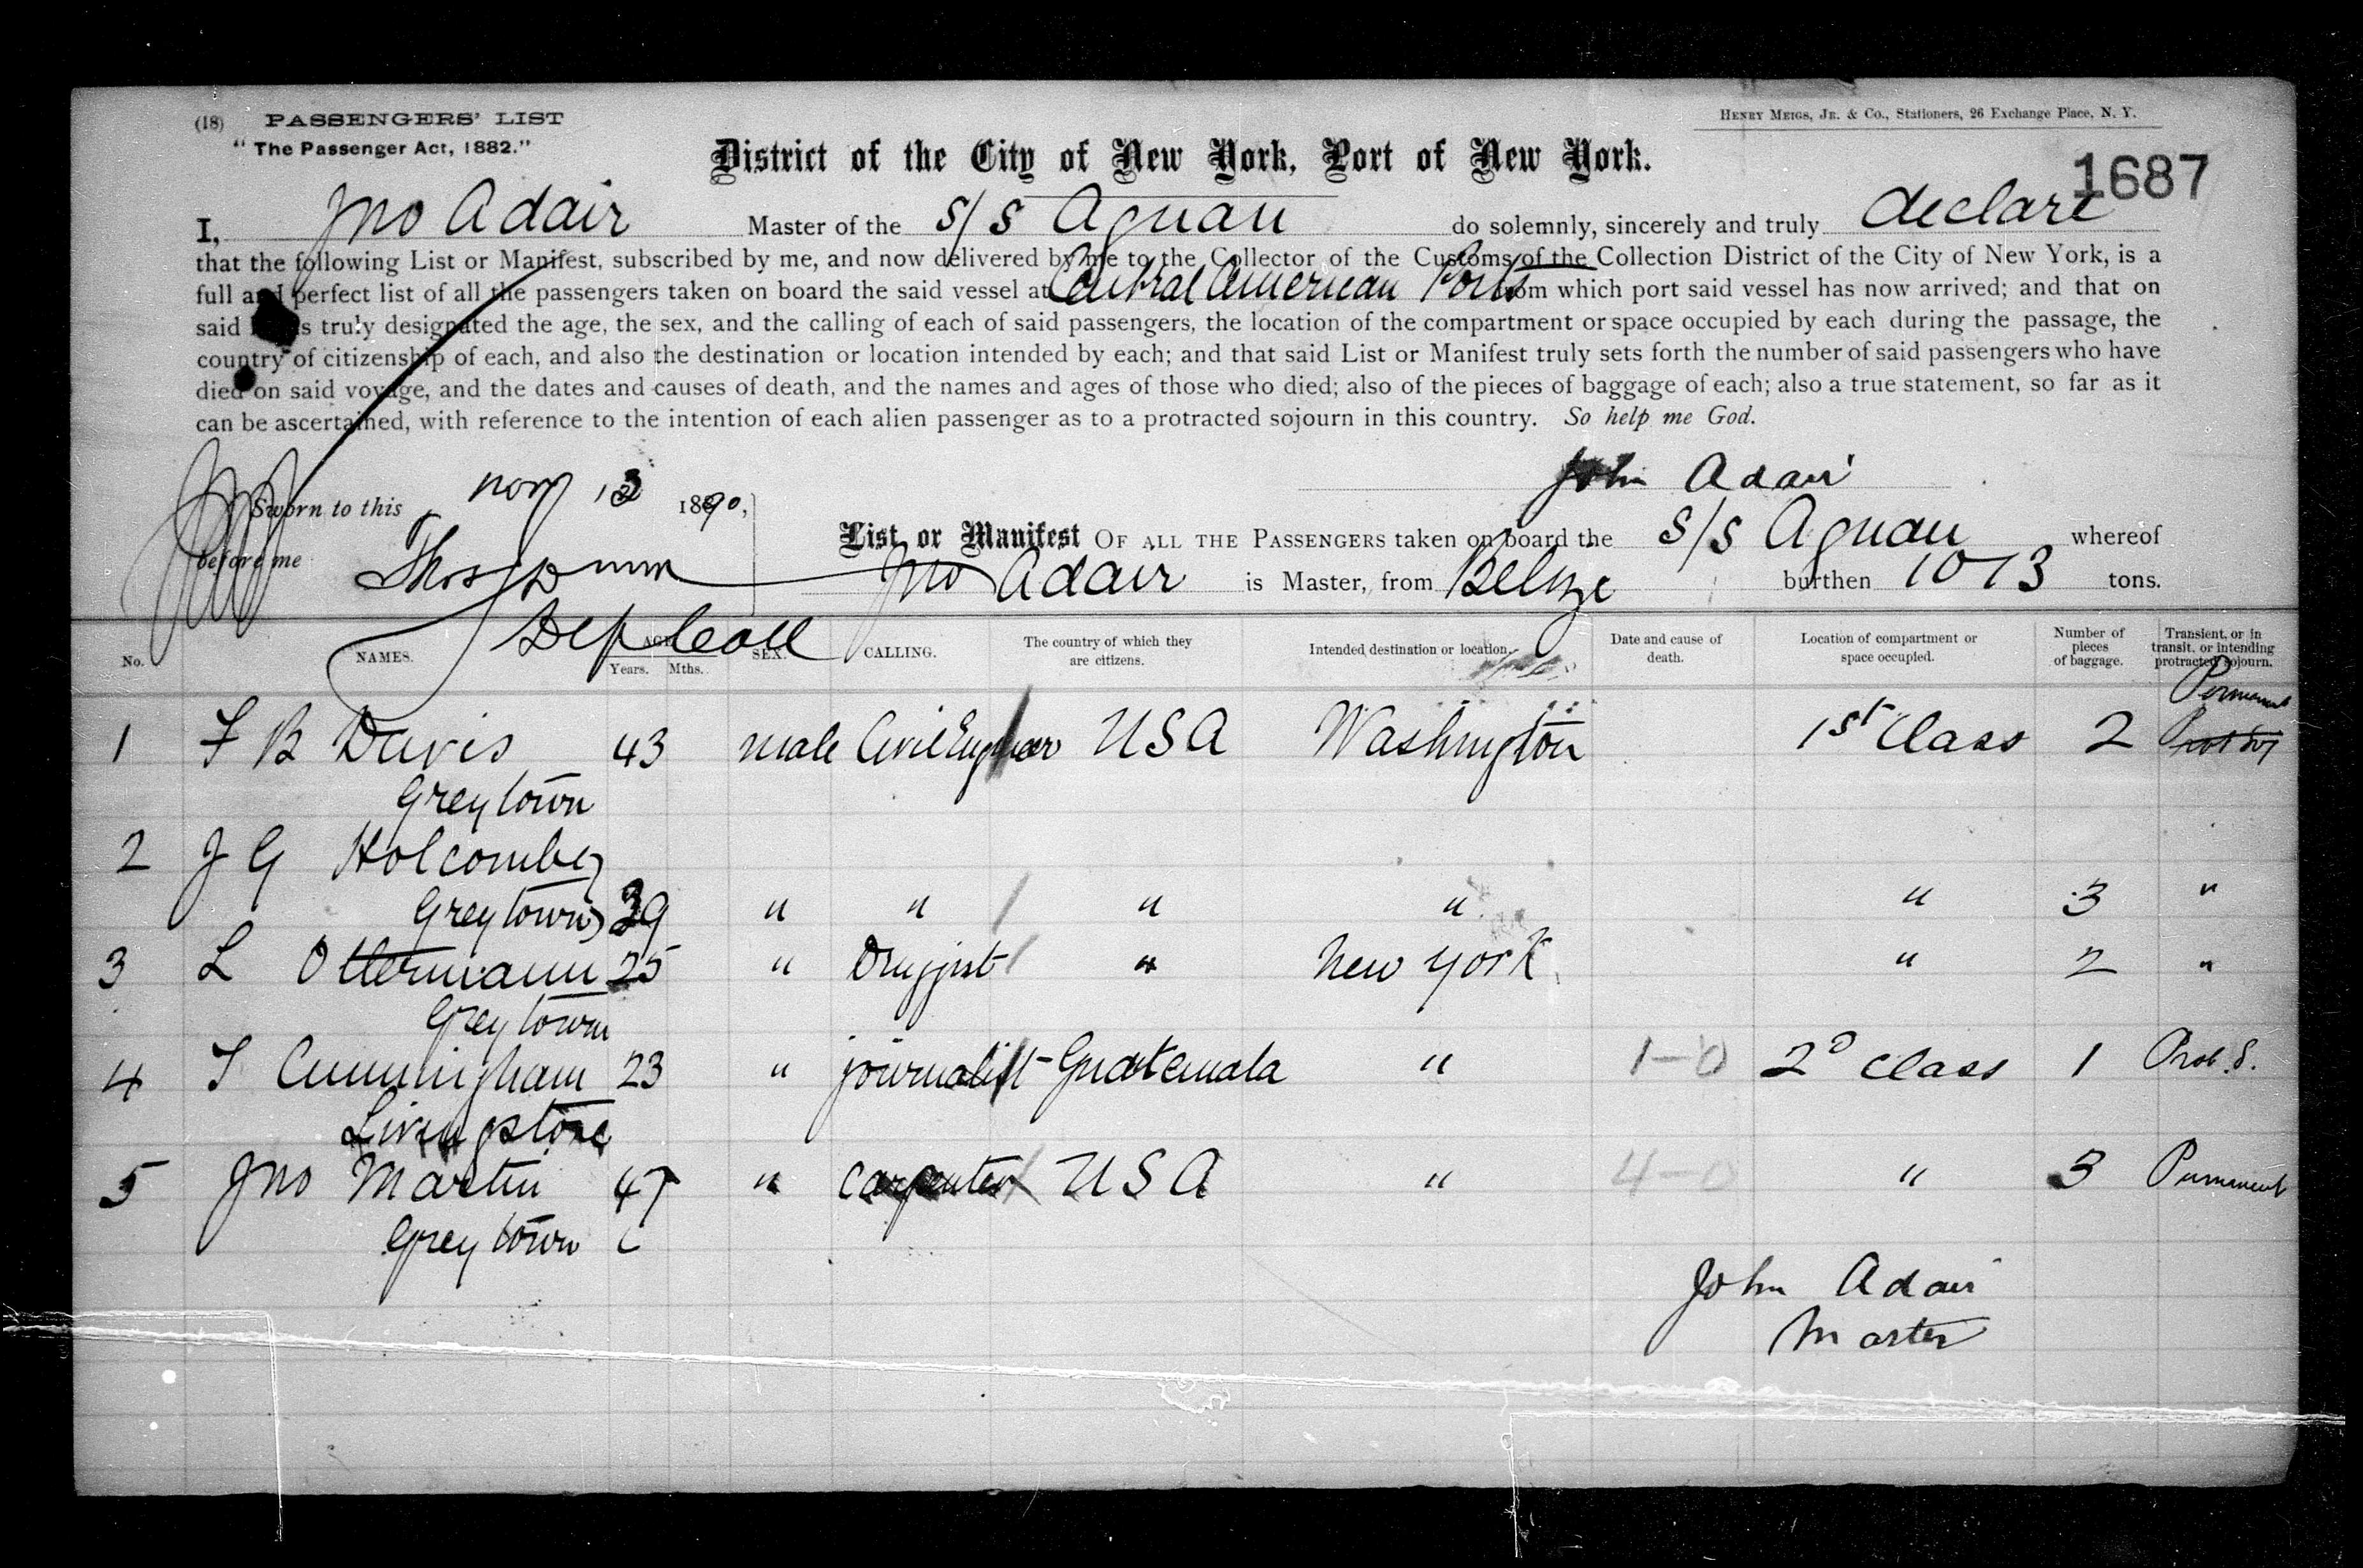 (18) PASSENGERS' LIST
HENRY MEIGS, JR. & CO., Stationers, 26 Exchange Place, N. Y.
"The Passenger Act, 1882."
District of the City of New York, Port of New York.
1687
I, Jno Adair Master of the S/S Aguan do solemnly, sincerely and truly declare
that the following List or Manifest, subscribed by me, and now delivered by me to the Collector of the Customs of the Collection District of the City of New York, is a
full and perfect list of all the passengers taken on board the said vessel at Central American Ports from which port said vessel has now arrived; and that on
said list is truly designated the age, the sex, and the calling of each of said passengers, the location of the compartment or space occupied by each during the passage, the
country of citizenship of each, and also the destination or location intended by each; and that said List or Manifest truly sets forth the number of said passengers who have
died on said voyage, and the dates and causes of death, and the names and ages of those who died; also of the pieces of baggage of each; also a true statement, so far as it
can be ascertained, with reference to the intention of each alien passenger as to a protracted sojourn in this country. So help me God.
John Adair
Sworn to this Nov 13 1890,
List or Manifest OF ALL THE PASSENGERS taken on board the S/S Aguan whereof
before me Thos Dunn
Jno Adair is Master, from Belize burthen 1073 tons.
Dep Coll
No. NAMES. AGE Years. Mths. SEX. CALLING. The country of which they are citizens. Intended destination or location. Date and cause of death. Location of compartment or space occupied. Number of pieces of baggage. Transient, or in transit, or intending protracted sojourn.
Permanent
1 F B Davis 43 male Civil Engineer USA Washington 1st Class 2 Prot Soj
Greytown
2 J G Holcombe
Greytown 39 " " " " " 3 "
3 L Ottermann 25 " Druggist " New York " 2 "
Greytown
4 T Cunningham 23 " journalist Guatemala " 1-0 2D Class 1 Prot. S.
Livingstone
5 Jno Martin 47 " carpenter USA " 4-0 " 3 Permanent
Greytown
John Adair
Master